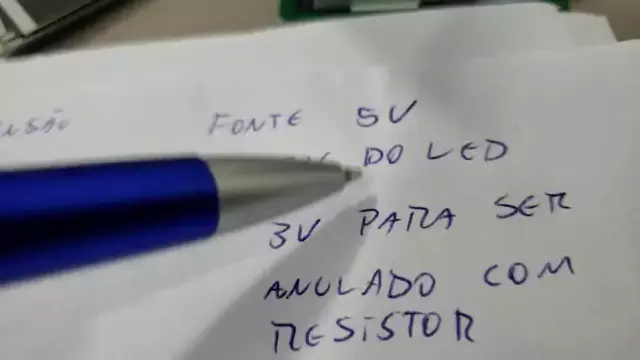 FONTE 5V
DO LED
3V PARA SER
ANULADO COM
RESISTOR